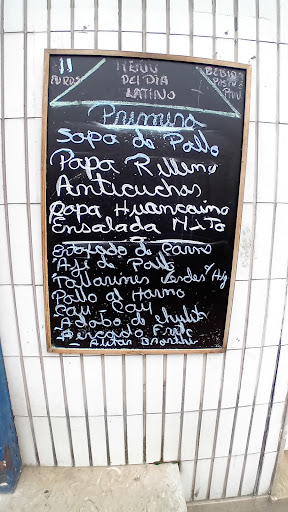 11 EUROS
MENU DEL DIA LATINO
BEBIDA POSTRE PAN
Primero
Sopa de Pollo
Papa Relleno
Anticuchos
Papa Huancaino
Ensalada MixTa
Estofado de Carne
Aji de Pollo
Tallarines Verdes
Pollo al Horno
Cau Cau
Adobo de
Pescado Frito